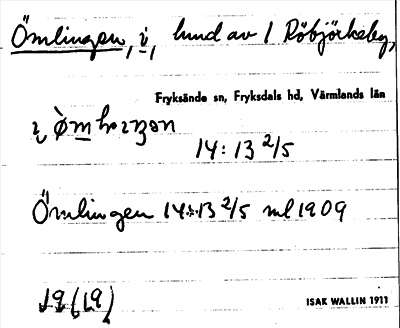 Ömlingen, i, lund av 1 Röbjörkeby,
Fryksände sn, Fryksdals hd, Värmlands län
14:13 2/5
Ömlingen 14:13 2/5 ml 1909
ISAK WALLIN 1911